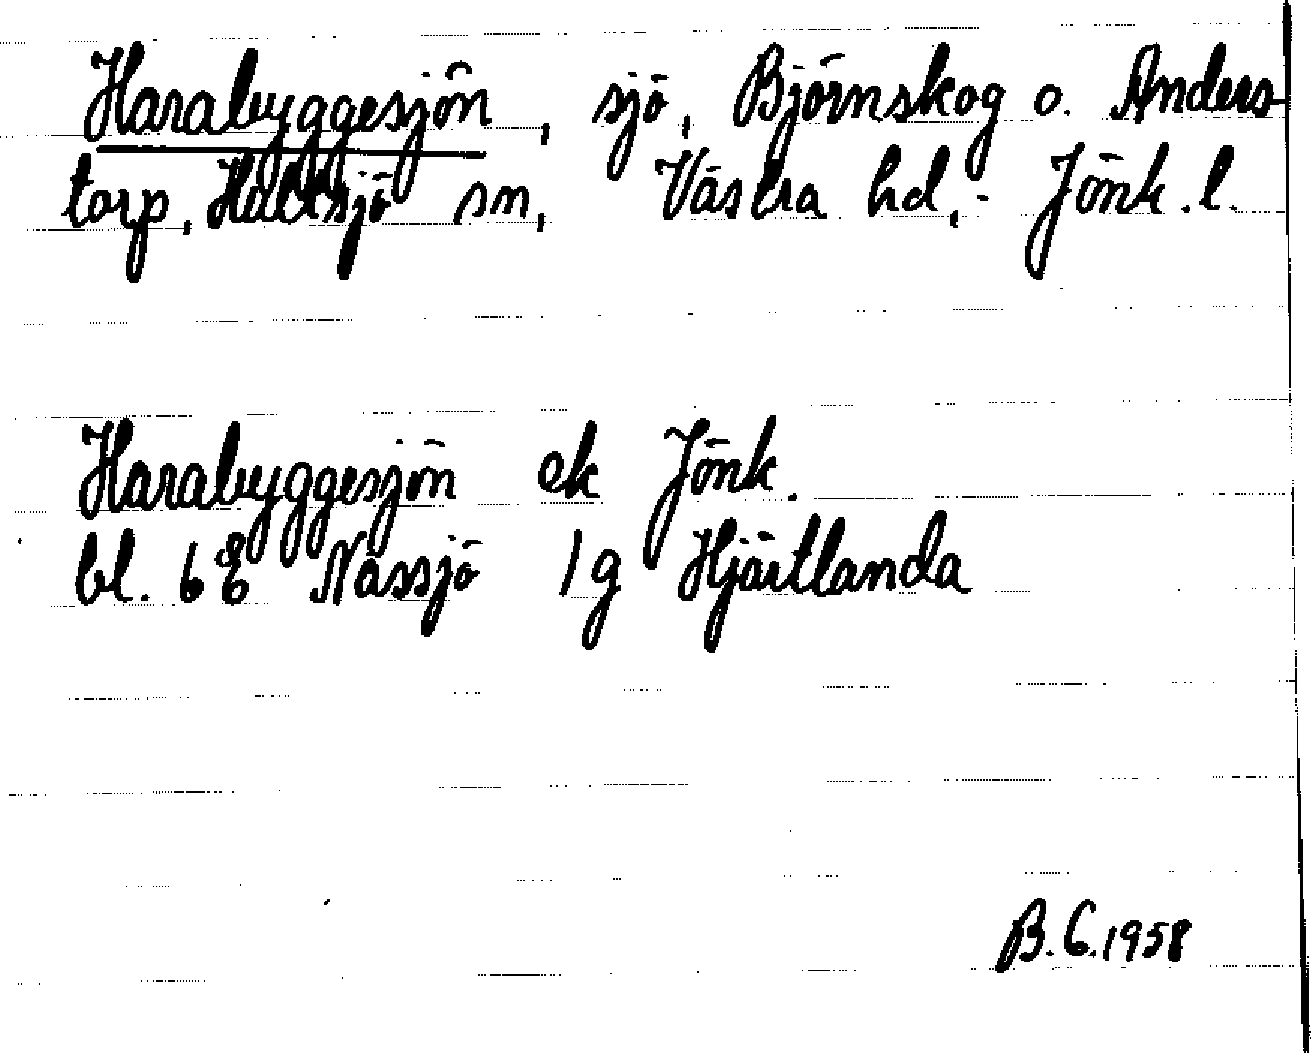 Harabyggesjön, sjö, Björnskog o. Anders
torp, Hultsjö sn, Västra hd, Jönk. l.
Harabyggesjön ek Jönk.
bl. 6E Nässjö 1g Hjärtlanda
B.G.1958